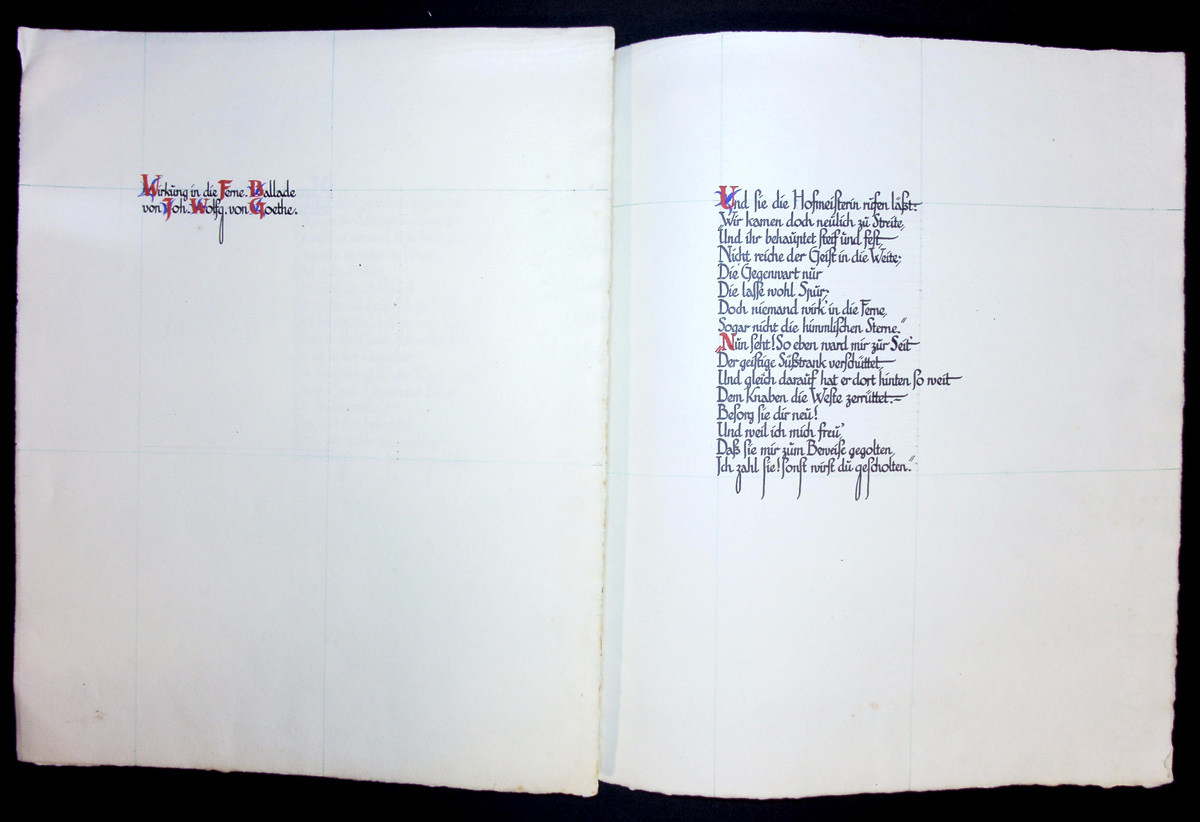 Wirkung in die Ferne. Ballade
von Joh. Wolfg. von Goethe.
Und sie die Hofmeisterin rufen läßt:
„Wir kamen doch neulich zu Streite,
Und ihr behauptet steif und fest,
Nicht reiche der Geist in die Weite;
Die Gegenwart nur
Die lasse wohl Spur;
Doch niemand wirk' in die Ferne,
Sogar nicht die himmlischen Sterne."
„Nun seht! So eben ward mir zur Seit
Der geistige Süßtrank verschüttet,
Und gleich darauf hat er dort hinten so weit
Dem Knaben die Weste zerrüttet.–
Besorg sie dir neu!
Und weil ich mich freu'
Daß sie mir zum Beweise gegolten,
Ich zahl sie! sonst wirst du gescholten."